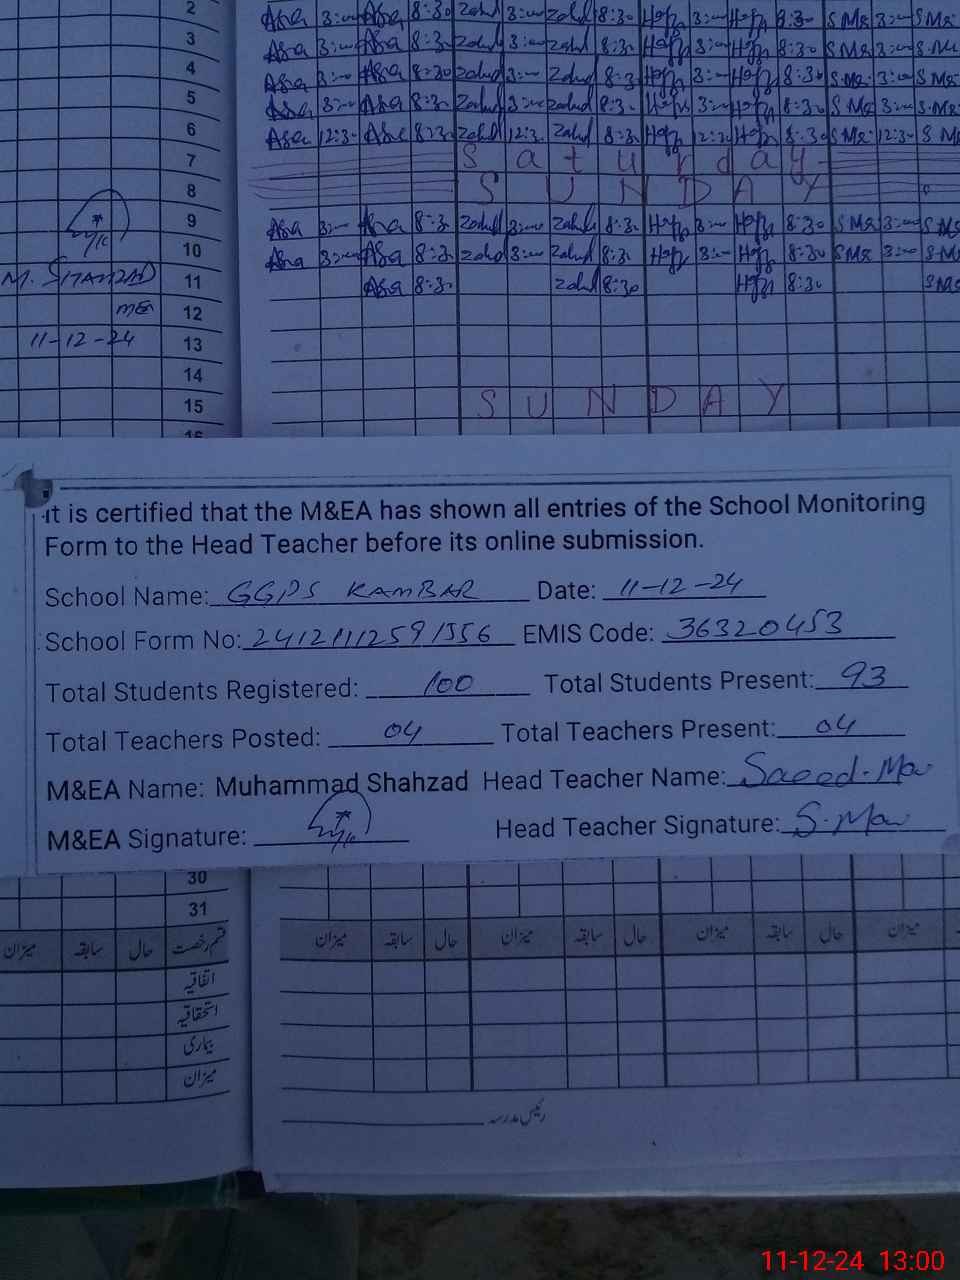 2 Asa 3:00 Asa 8:30 Zahd 3:00 Zahd 8:30 3:00 8:30 SMS 3:00 SMS
3 Asa 3:00 Asa 8:30 Zahd 3:00 Zahd 8:30 3:00 8:30 SMS 3:00 S.MS
4 Asa 3:00 Asa 8:30 Zahd 3:00 Zahd 8:30 3:00 8:30 SMS 3:00 S MS
5 Asa 3:00 Asa 8:30 Zahd 3:00 Zahd 8:30 3:00 8:30 S MS 3:00 S.MS
6 Asa 12:30 Asa 8:30 Zahd 12:30 Zahd 8:30 12:30 8:30 SMS 12:30 S MS
7 Saturday
8 SUNDAY
9 Asa 3:00 Asa 8:30 Zahd 3:00 Zahd 8:30 3:00 8:30 SMS 3:00 SMS
10 Asa 3:00 Asa 8:30 Zahd 3:00 Zahd 8:30 3:00 8:30 SMS 3:00 S.MS
M. SHAHZAD 11 Asa 8:30 Zahd 8:30 8:30 SMS
MEA 12
11-12-24 13
14
15 SUNDAY
16
It is certified that the M&EA has shown all entries of the School Monitoring
Form to the Head Teacher before its online submission.
School Name: GGPS KAMBAR Date: 11-12-24
School Form No: 24121112591556 EMIS Code: 36320453
Total Students Registered: 100 Total Students Present: 93
Total Teachers Posted: 04 Total Teachers Present: 04
M&EA Name: Muhammad Shahzad Head Teacher Name: Saeed
M&EA Signature: Head Teacher Signature: S.
30
31
قسم رخصت حال سابقہ میزان حال سابقہ میزان حال سابقہ میزان حال سابقہ میزان
اتفاقیہ
استحقاقیہ
بیماری
میزان
رئیس مدرسہ
11-12-24 13:00